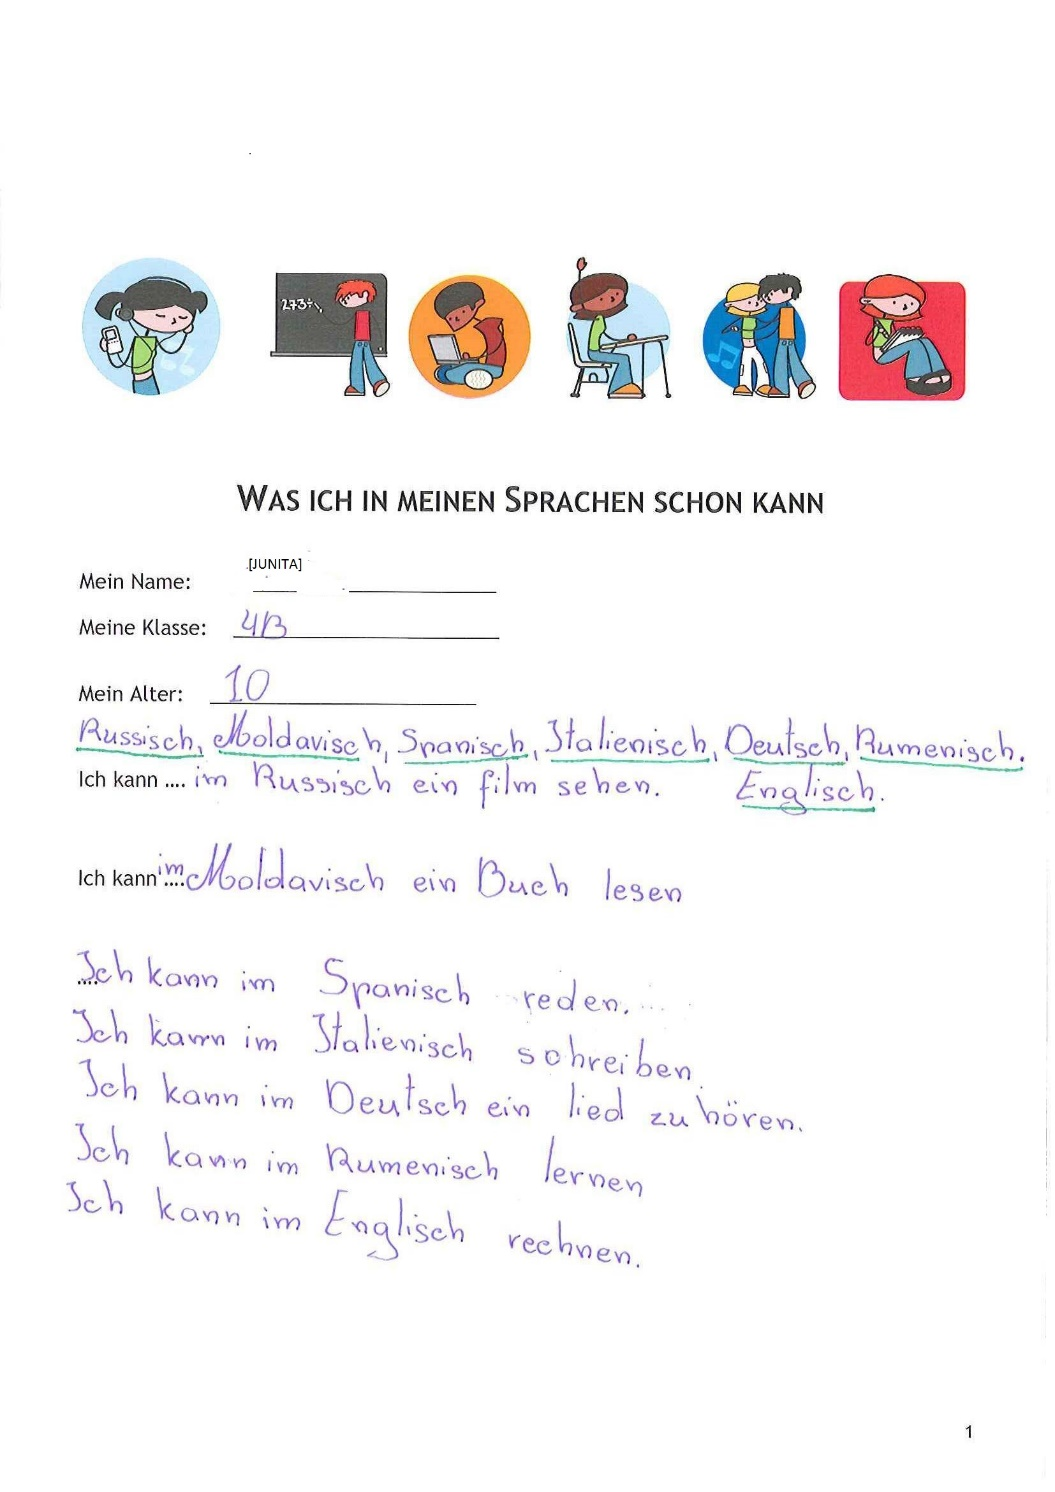 273÷
WAS ICH IN MEINEN SPRACHEN SCHON KANN
[JUNITA]
Mein Name:
Meine Klasse: 4B
Mein Alter: 10
Russisch, Moldavisch, Spanisch, Italienisch, Deutsch, Rumenisch.
Englisch.
Ich kann .... im Russisch ein film sehen.
Ich kann .... im Moldavisch ein Buch lesen
.... Ich kann im Spanisch reden.
Ich kann im Italienisch schreiben.
Ich kann im Deutsch ein lied zu hören.
Ich kann im Rumenisch lernen
Ich kann im Englisch rechnen.
1